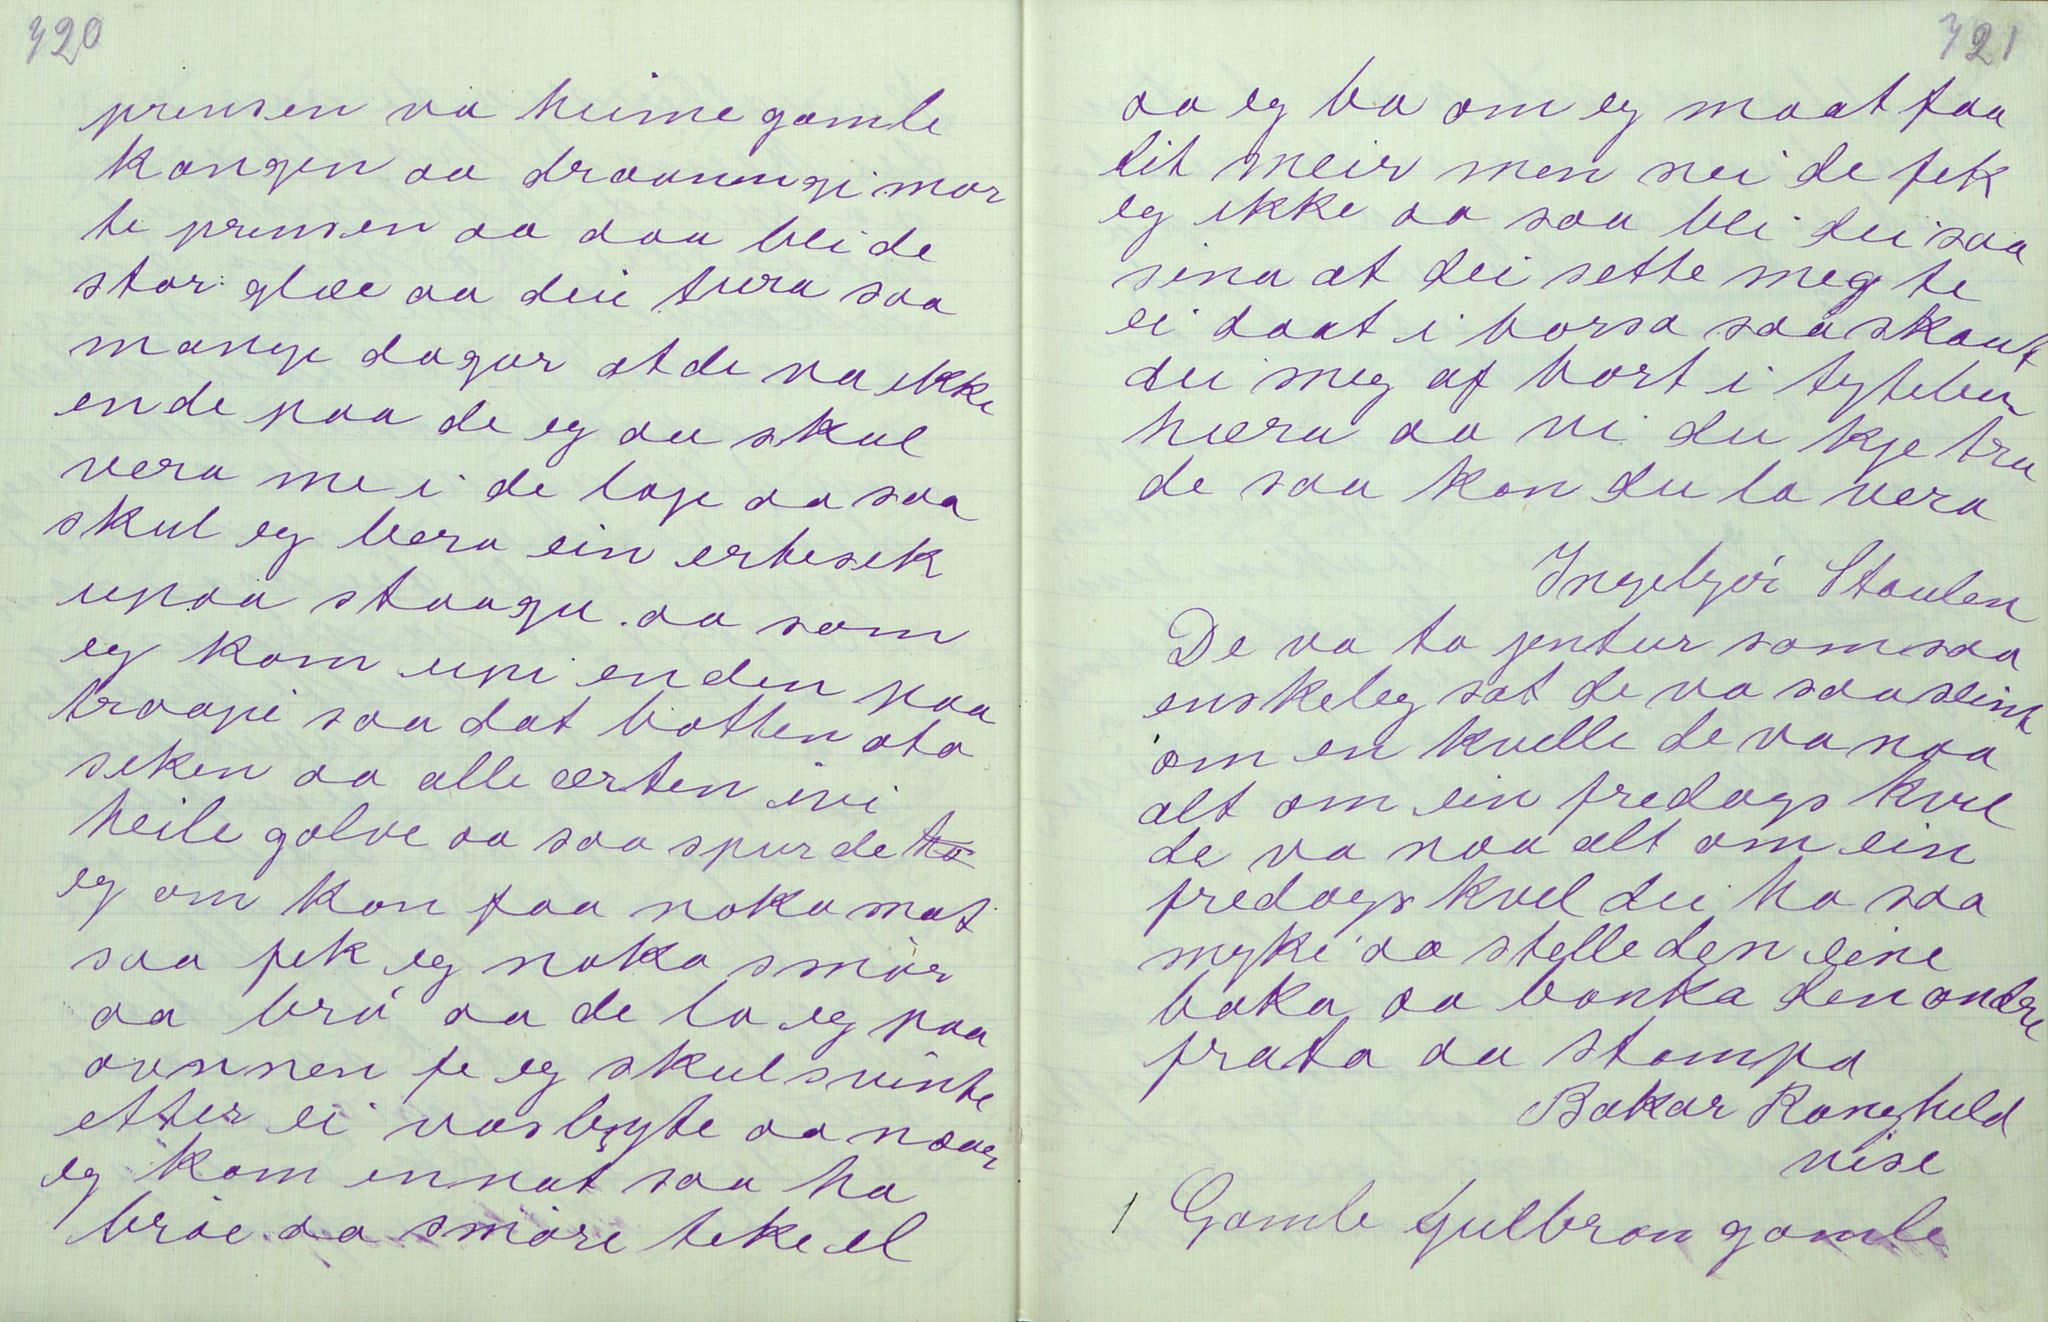 320
prensen va heime gamle
kongen aa draanningi mor
te prensen aa daa blei de
stor glæe aa dei tura saa
mange dagar at de va ikke
ende paa de eg aa skul
vera me i de lage aa saa
skul eg bera ein ertesek
upaa staagu. aa som
eg kom upi enden paa
traapi saa dat botten ata
seken aa alle ærten ivi
heile golve aa saa spurde
eg om kon faa noko mat
saa fek eg noko smør
aa brø aa de la eg paa
ovnnen fe eg skul svinte
etter ei vasbytte aa naar
eg kom ennat saa ha
brøe aa smøre teke el
321
aa eg ba om eg maat faa
lit meir men nei de fek
eg ikke aa saa blei dei saa
sina at dei sette meg te
ei daat i borsa saa skaut
dei meg af bort i tyteber
hæra aa vi du kje tru
de saa kan du la vera
Ingebjør Staulen
De va to jentur som saa
enskeleg sat de va saa seint
om en kvelle de va naa
alt om ein fredags kvel
de va naa alt om ein
fredags kvel dei ha saa
mykje aa stelle den eine
baka aa banka den andre
prata aa stampa
Bakar Rangheld
vise
1 Gamle Gulbran gamle